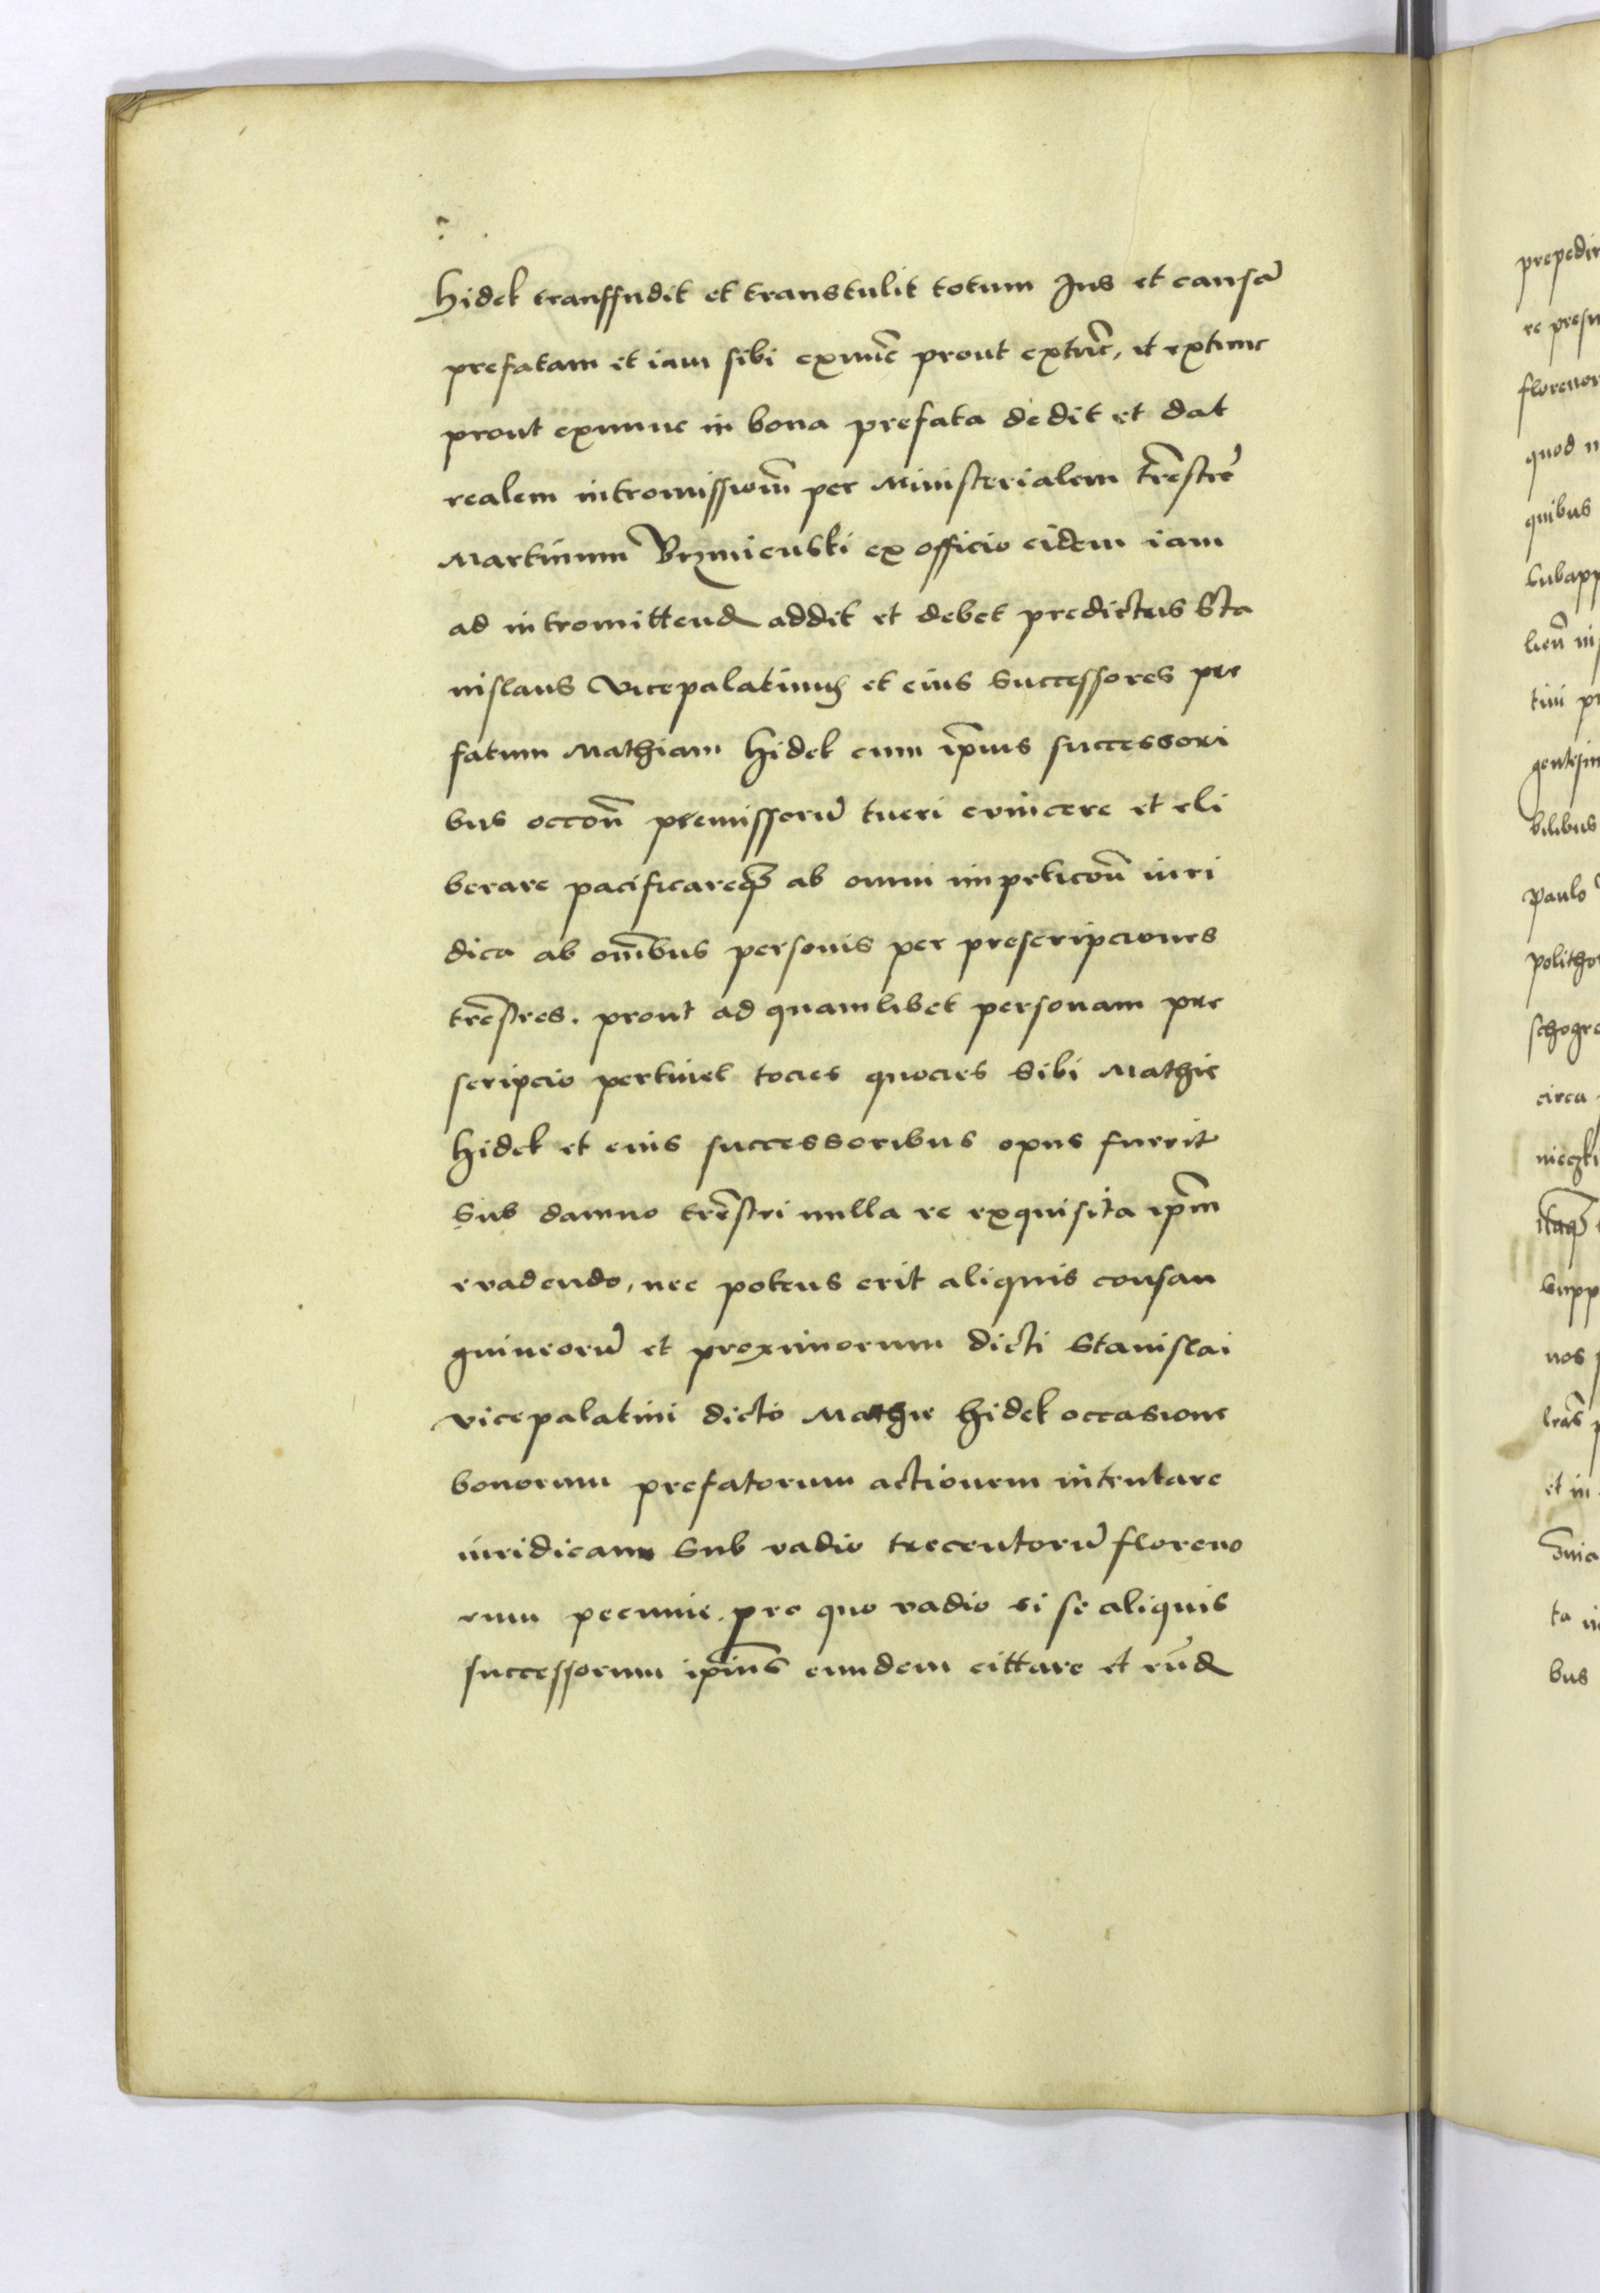 Hidek transffudit et transtulit totum Jus et causã
prefatam et iam sibi exnũc prout extũc, et extunc
prout exnunc in bona prefata dedit et dat
realem intromissionẽ per Ministerialem tr̃estrẽ
Martinum Brzmienski ex officio eidem iam
ad intromittend addit et debet predictus Sta
nislaus vicepalatinus et eius successores pre
fatum Mathiam Hidek cum ip̃ius successori
bus occoñ premissorũ tueri evincere et eli
berare pacificareq3 ab omni impeticoñ iuri
dica ab om̃ibus personis per prescripciones
tr̃estres. prout ad quamlibet personam pre
scripcio pertinet tocies quocies sibi Mathie
Hidek et eius successoribus opus fuerit
sub damno tr̃estri nulla re exquisita ip̃m
evadendo, nec potens erit aliquis consan
guineorũ et proximorum dicti Stanislai
vicepalatini dicto Mathie Hidek occasione
bonorum prefatorum actionem intentare
iuridicam sub vadio trecentorũ floreno
rum pecunie. pro quo vadio si se aliquis
successorum ip̃ius eundem cittare et eũd
prepedir
re presu
florenor
quod n
quibus
subapp
tini pr
gentesim
bilibus
Paulo
politho
schogre
circa
itaq3
supp
nos
et in
ta
bus